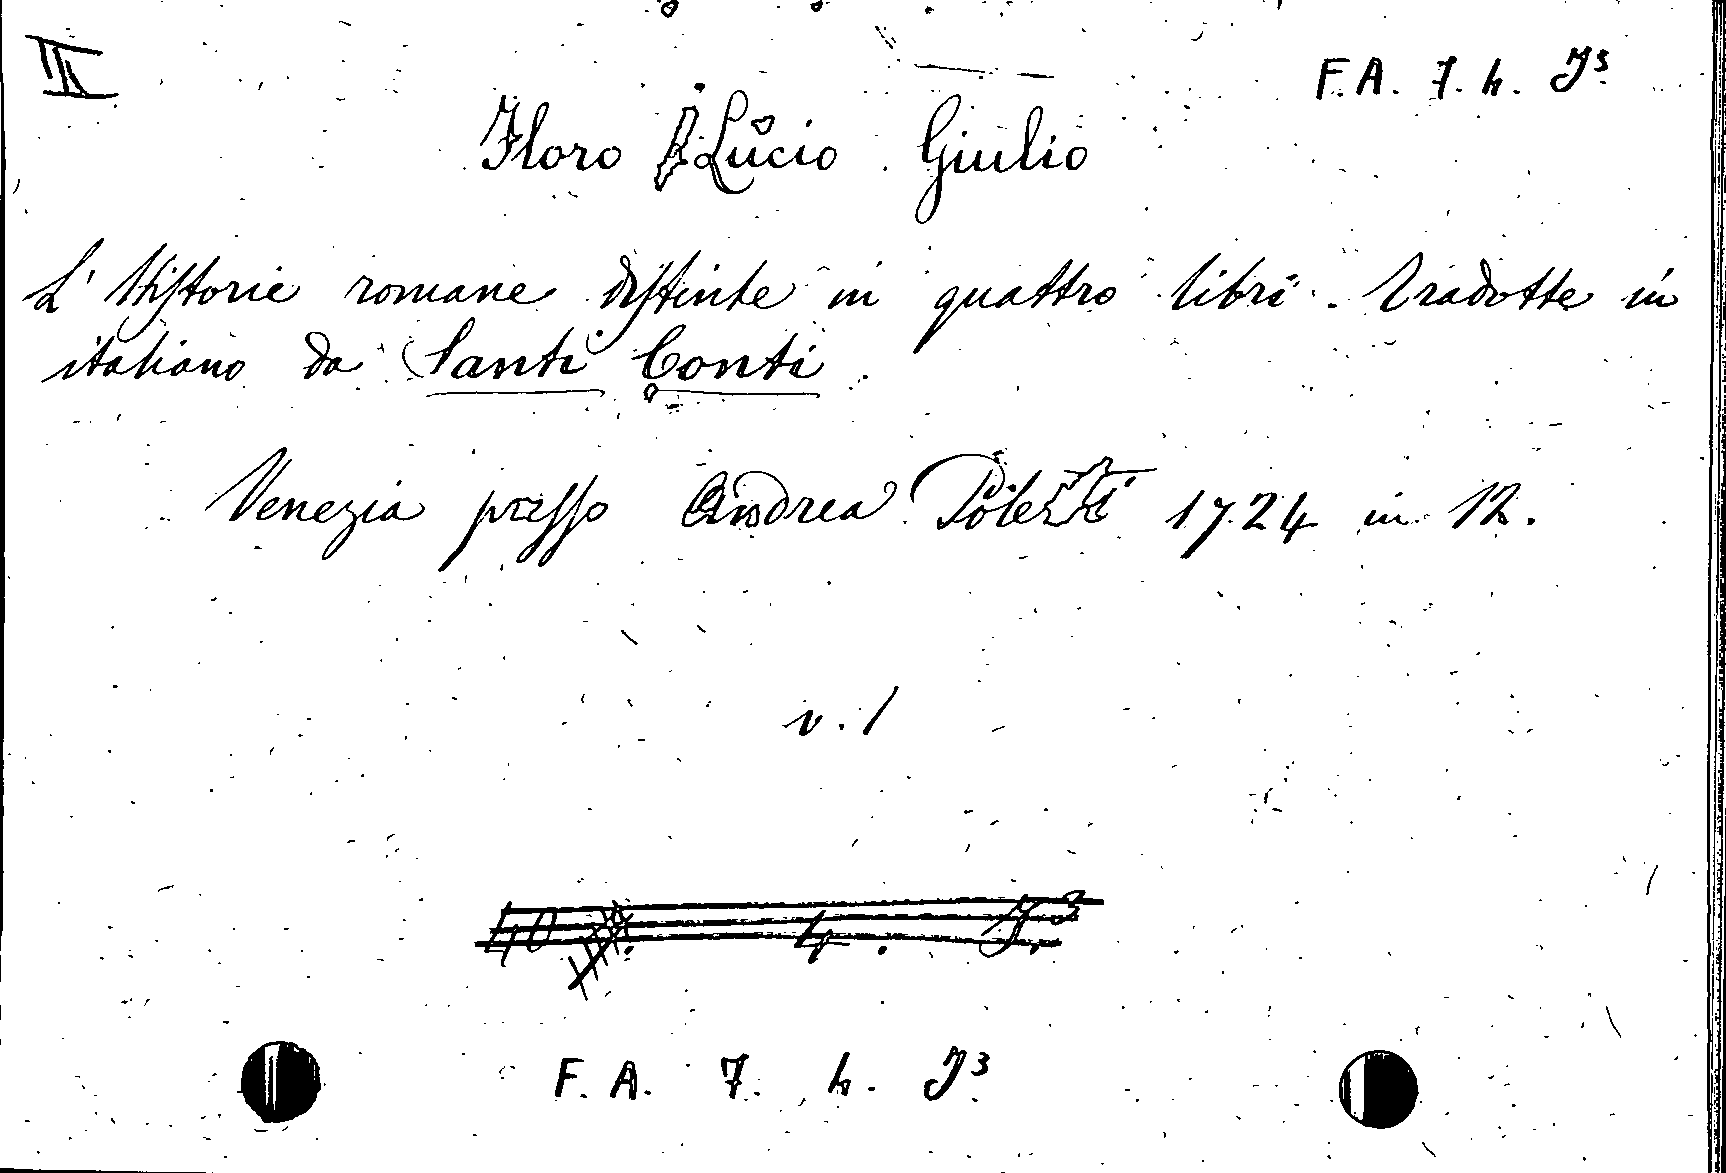 II
F. A. 7. h. J³
Floro Lucio Giulio
L' Historie romane distinte in quattro libri. Tradotte in
italiano da Santi Conti
Venezia presso Andrea Poletti 1724 in 12.
v. 1
F. A. 7. h. J³